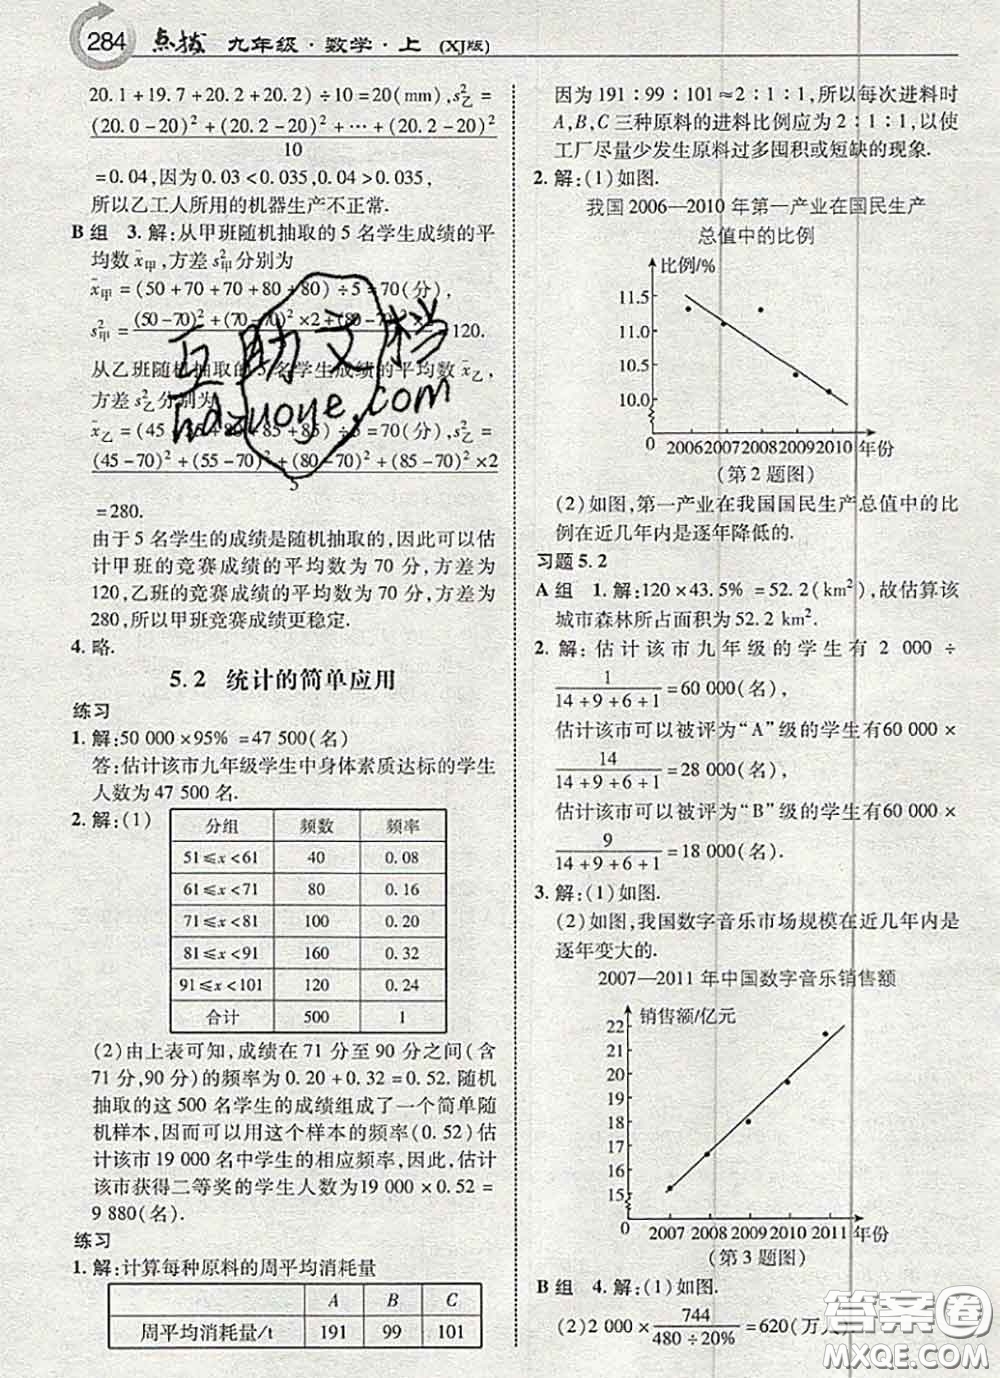 284 点拨 九年级·数学·上 (XJ版)
20.1+19.7+20.2+20.2)÷10=20(mm),s²乙=
(20.0-20)²+(20.2-20)²+…+(20.2-20)²
10
=0.04,因为0.03<0.035,0.04>0.035,
所以乙工人所用的机器生产不正常.
B组 3.解:从甲班随机抽取的5名学生成绩的平
均数x̄甲,方差s²甲分别为
x̄甲=(50+70+70+80+80)÷5=70(分),
s²甲=(50-70)²+(70-70)²×2+(80-70)²×2
=120.
从乙班随机抽取的5名学生成绩的平均数x̄乙,
方差s²乙分别为
x̄乙=(45+55+80+85+85)÷5=70(分),s²乙=
(45-70)²+(55-70)²+(80-70)²+(85-70)²×2
5
=280.
由于5名学生的成绩是随机抽取的,因此可以估
计甲班的竞赛成绩的平均数为70分,方差为
120,乙班的竞赛成绩的平均数为70分,方差为
280,所以甲班竞赛成绩更稳定.
4.略.
5.2 统计的简单应用
练习
1.解:50 000×95%=47 500(名)
答:估计该市九年级学生中身体素质达标的学生
人数为47 500名.
2.解:(1)
分组 频数 频率
51≤x<61 40 0.08
61≤x<71 80 0.16
71≤x<81 100 0.20
81≤x<91 160 0.32
91≤x<101 120 0.24
合计 500 1
(2)由上表可知,成绩在71分至90分之间(含
71分,90分)的频率为0.20+0.32=0.52.随机
抽取的这500名学生的成绩组成了一个简单随
机样本,因而可以用这个样本的频率(0.52)估
计该市19 000名中学生的相应频率,因此,估计
该市获得二等奖的学生人数为19 000×0.52=
9 880(名).
练习
1.解:计算每种原料的周平均消耗量
A B C
周平均消耗量/t 191 99 101
因为191∶99∶101≈2∶1∶1,所以每次进料时
A,B,C三种原料的进料比例应为2∶1∶1,以使
工厂尽量少发生原料过多囤积或短缺的现象.
2.解:(1)如图.
我国2006—2010年第一产业在国民生产
总值中的比例
比例/%
11.5
11.0
10.5
10.0
0 2006 2007 2008 2009 2010 年份
(第2题图)
(2)如图,第一产业在我国国民生产总值中的比
例在近几年内是逐年降低的.
习题5.2
A组 1.解:120×43.5%=52.2(km²),故估算该
城市森林所占面积为52.2 km².
2.解:估计该市九年级的学生有2 000÷
1
14+9+6+1
=60 000(名),
估计该市可以被评为“A”级的学生有60 000×
14
14+9+6+1
=28 000(名),
估计该市可以被评为“B”级的学生有60 000×
9
14+9+6+1
=18 000(名).
3.解:(1)如图.
(2)如图,我国数字音乐市场规模在近几年内是
逐年变大的.
2007—2011年中国数字音乐销售额
销售额/亿元
22
21
20
19
18
17
16
15
0 2007 2008 2009 2010 2011 年份
(第3题图)
B组 4.解:(1)如图.
(2)2 000×
744
480÷20%
=620(万人)
互助文档
hdzuoye.com
答案圈
MXQE.COM